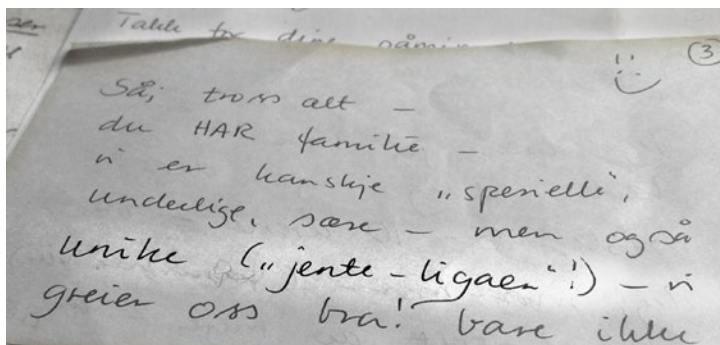 Takk for dine
③
Så, tross alt –
du HAR familie –
vi er kanskje „spesielle",
underlige, sære – men også
unike („jente-ligaen"!) – vi
greier oss bra! bare ikke